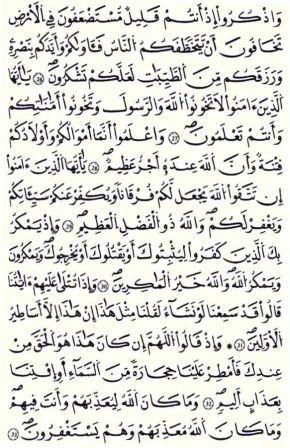 وَاذْكُرُوٓا۟ إِذْ أَنتُمْ قَلِيلٌ مُّسْتَضْعَفُونَ فِى الْأَرْضِ
تَخَافُونَ أَن يَتَخَطَّفَكُمُ النَّاسُ فَـَٔاوَىٰكُمْ وَأَيَّدَكُم بِنَصْرِهِۦ
وَرَزَقَكُم مِّنَ الطَّيِّبَٰتِ لَعَلَّكُمْ تَشْكُرُونَ ٢٦ يَٰٓأَيُّهَا
الَّذِينَ ءَامَنُوا۟ لَا تَخُونُوا۟ اللَّهَ وَالرَّسُولَ وَتَخُونُوٓا۟ أَمَٰنَٰتِكُمْ
وَأَنتُمْ تَعْلَمُونَ ٢٧ وَاعْلَمُوٓا۟ أَنَّمَآ أَمْوَٰلُكُمْ وَأَوْلَٰدُكُمْ
فِتْنَةٌ وَأَنَّ اللَّهَ عِندَهُۥٓ أَجْرٌ عَظِيمٌ ٢٨ يَٰٓأَيُّهَا الَّذِينَ ءَامَنُوٓا۟
إِن تَتَّقُوا۟ اللَّهَ يَجْعَل لَّكُمْ فُرْقَانًا وَيُكَفِّرْ عَنكُمْ سَيِّـَٔاتِكُمْ
وَيَغْفِرْ لَكُمْ وَاللَّهُ ذُو الْفَضْلِ الْعَظِيمِ ٢٩ وَإِذْ يَمْكُرُ
بِكَ الَّذِينَ كَفَرُوا۟ لِيُثْبِتُوكَ أَوْ يَقْتُلُوكَ أَوْ يُخْرِجُوكَ وَيَمْكُرُونَ
وَيَمْكُرُ اللَّهُ وَاللَّهُ خَيْرُ الْمَٰكِرِينَ ٣٠ وَإِذَا تُتْلَىٰ عَلَيْهِمْ ءَايَٰتُنَا
قَالُوا۟ قَدْ سَمِعْنَا لَوْ نَشَآءُ لَقُلْنَا مِثْلَ هَٰذَآ إِنْ هَٰذَآ إِلَّآ أَسَٰطِيرُ
الْأَوَّلِينَ ٣١ وَإِذْ قَالُوا۟ اللَّهُمَّ إِن كَانَ هَٰذَا هُوَ الْحَقَّ مِنْ
عِندِكَ فَأَمْطِرْ عَلَيْنَا حِجَارَةً مِّنَ السَّمَآءِ أَوِ ائْتِنَا
بِعَذَابٍ أَلِيمٍ ٣٢ وَمَا كَانَ اللَّهُ لِيُعَذِّبَهُمْ وَأَنتَ فِيهِمْ
وَمَا كَانَ اللَّهُ مُعَذِّبَهُمْ وَهُمْ يَسْتَغْفِرُونَ ٣٣